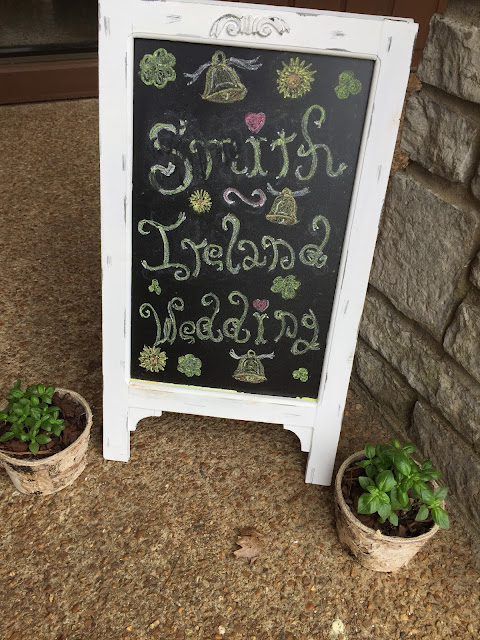 Smith
~
Ireland
Wedding